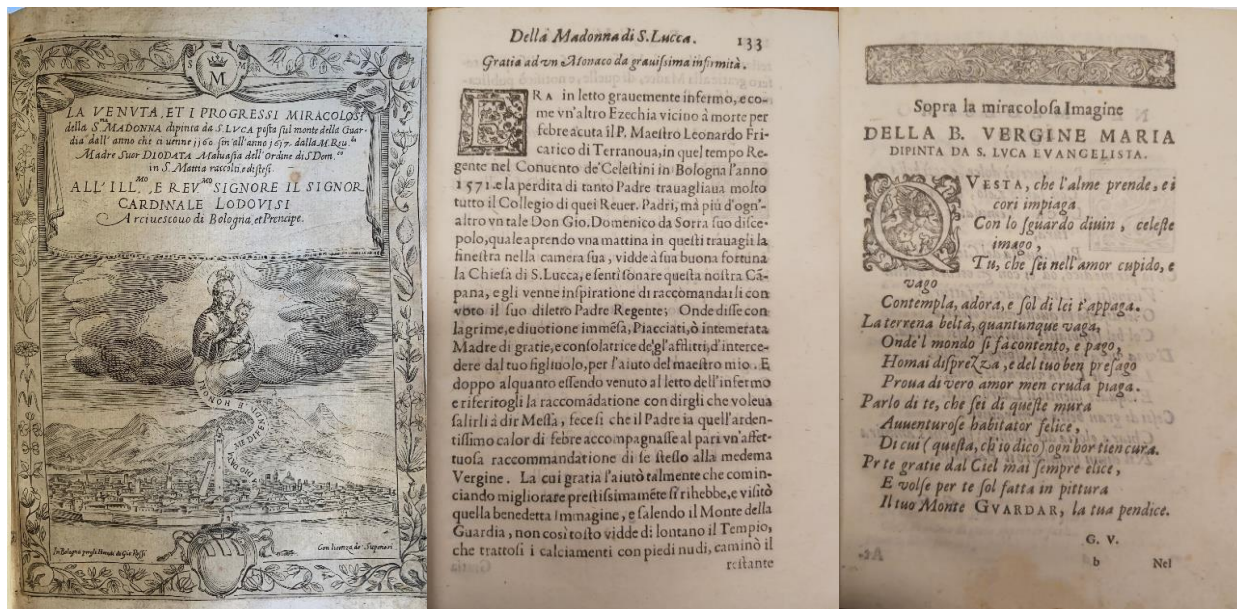 S M
M
MAR
LA VENVTA, ET I PROGRESSI MIRACOLOSI
della S.ma MADONNA dipinta da S. LVCA posta sul monte della Guar-
dia dall' anno che ci uenne 1160 sin' all' anno 1617. dalla M. Reu.da
Madre Suor DIODATA Maluasia dell'Ordine di S. Dom.co
in S. Mattia raccolti, e distesi.
ALL' ILL.MO E REV.MO SIGNORE IL SIGNOR
CARDINALE LODOVISI
Arciuescouo di Bologna, et Prencipe.
HONOR
In Bologna per gli Heredi di Gio: Rossi
Con licenza de' Superiori
Della Madonna di S. Lucca. 133
Gratia ad vn Monaco da grauissima infirmità.
ERA in letto grauemente infermo, e co-
me vn'altro Ezechia vicino à morte per
febre acuta il P. Maestro Leonardo Fri-
carico di Terranoua, in quel tempo Re-
gente nel Conuento de' Celestini in Bologna l'anno
1571. e la perdita di tanto Padre trauagliaua molto
tutto il Collegio di quei Reuer. Padri, mà più d'ogn'-
altro vn tale Don Gio. Domenico da Sorra suo disce-
polo, quale aprendo vna mattina in questi trauagli la
finestra nella camera sua, vidde à sua buona fortuna
la Chiesa di S. Lucca, e sentì sonare questa nostra Cã-
pana, e gli venne inspiratione di raccomandarli con
voto il suo diletto Padre Regente; Onde disse con
lagrime, e diuotione immẽsa, Piacciati, ò intemerata
Madre di gratie, e consolatrice de gl'afflitti, d'interce-
dere dal tuo figliuolo, per l'aiuto del maestro mio. E
doppo alquanto essendo venuto al letto dell'infermo
e riferitogli la raccomãdatione con dirgli che voleua
salirli à dir Messa, fece sì che il Padre in quell'arden-
tissimo calor di febre accompagnasse al pari vn'affet-
tuosa raccommandatione di se stesso alla medema
Vergine. La cui gratia l'aiutò talmente che comin-
ciando migliorare prestissimamẽte si rihebbe, e visitò
quella benedetta Immagine, e salendo il Monte della
Guardia, non così tosto vidde di lontano il Tempio,
che trattosi i calciamenti con piedi nudi, caminò il
restante
Sopra la miracolosa Imagine
DELLA B. VERGINE MARIA
DIPINTA DA S. LVCA EVANGELISTA.
QVESTA, che l'alme prende, e i
cori impiaga
Con lo sguardo diuin, celeste
imago,
Tu, che sei nell'amor cupido, e
vago
Contempla, adora, e sol di lei t'appaga.
La terrena beltà, quantunque vaga,
Onde'l mondo si fa contento, e pago,
Homai disprezza, e del tuo ben presago
Proua di vero amor men cruda piaga.
Parlo di te, che sei di queste mura
Auuenturose habitator felice,
Di cui (questa, ch'io dico) ogn hor tien cura.
Pr te gratie dal Ciel mai sempre elice,
E volse per te sol fatta in pittura
Il tuo Monte GVARDAR, la tua pendice.
G. V.
b Nel